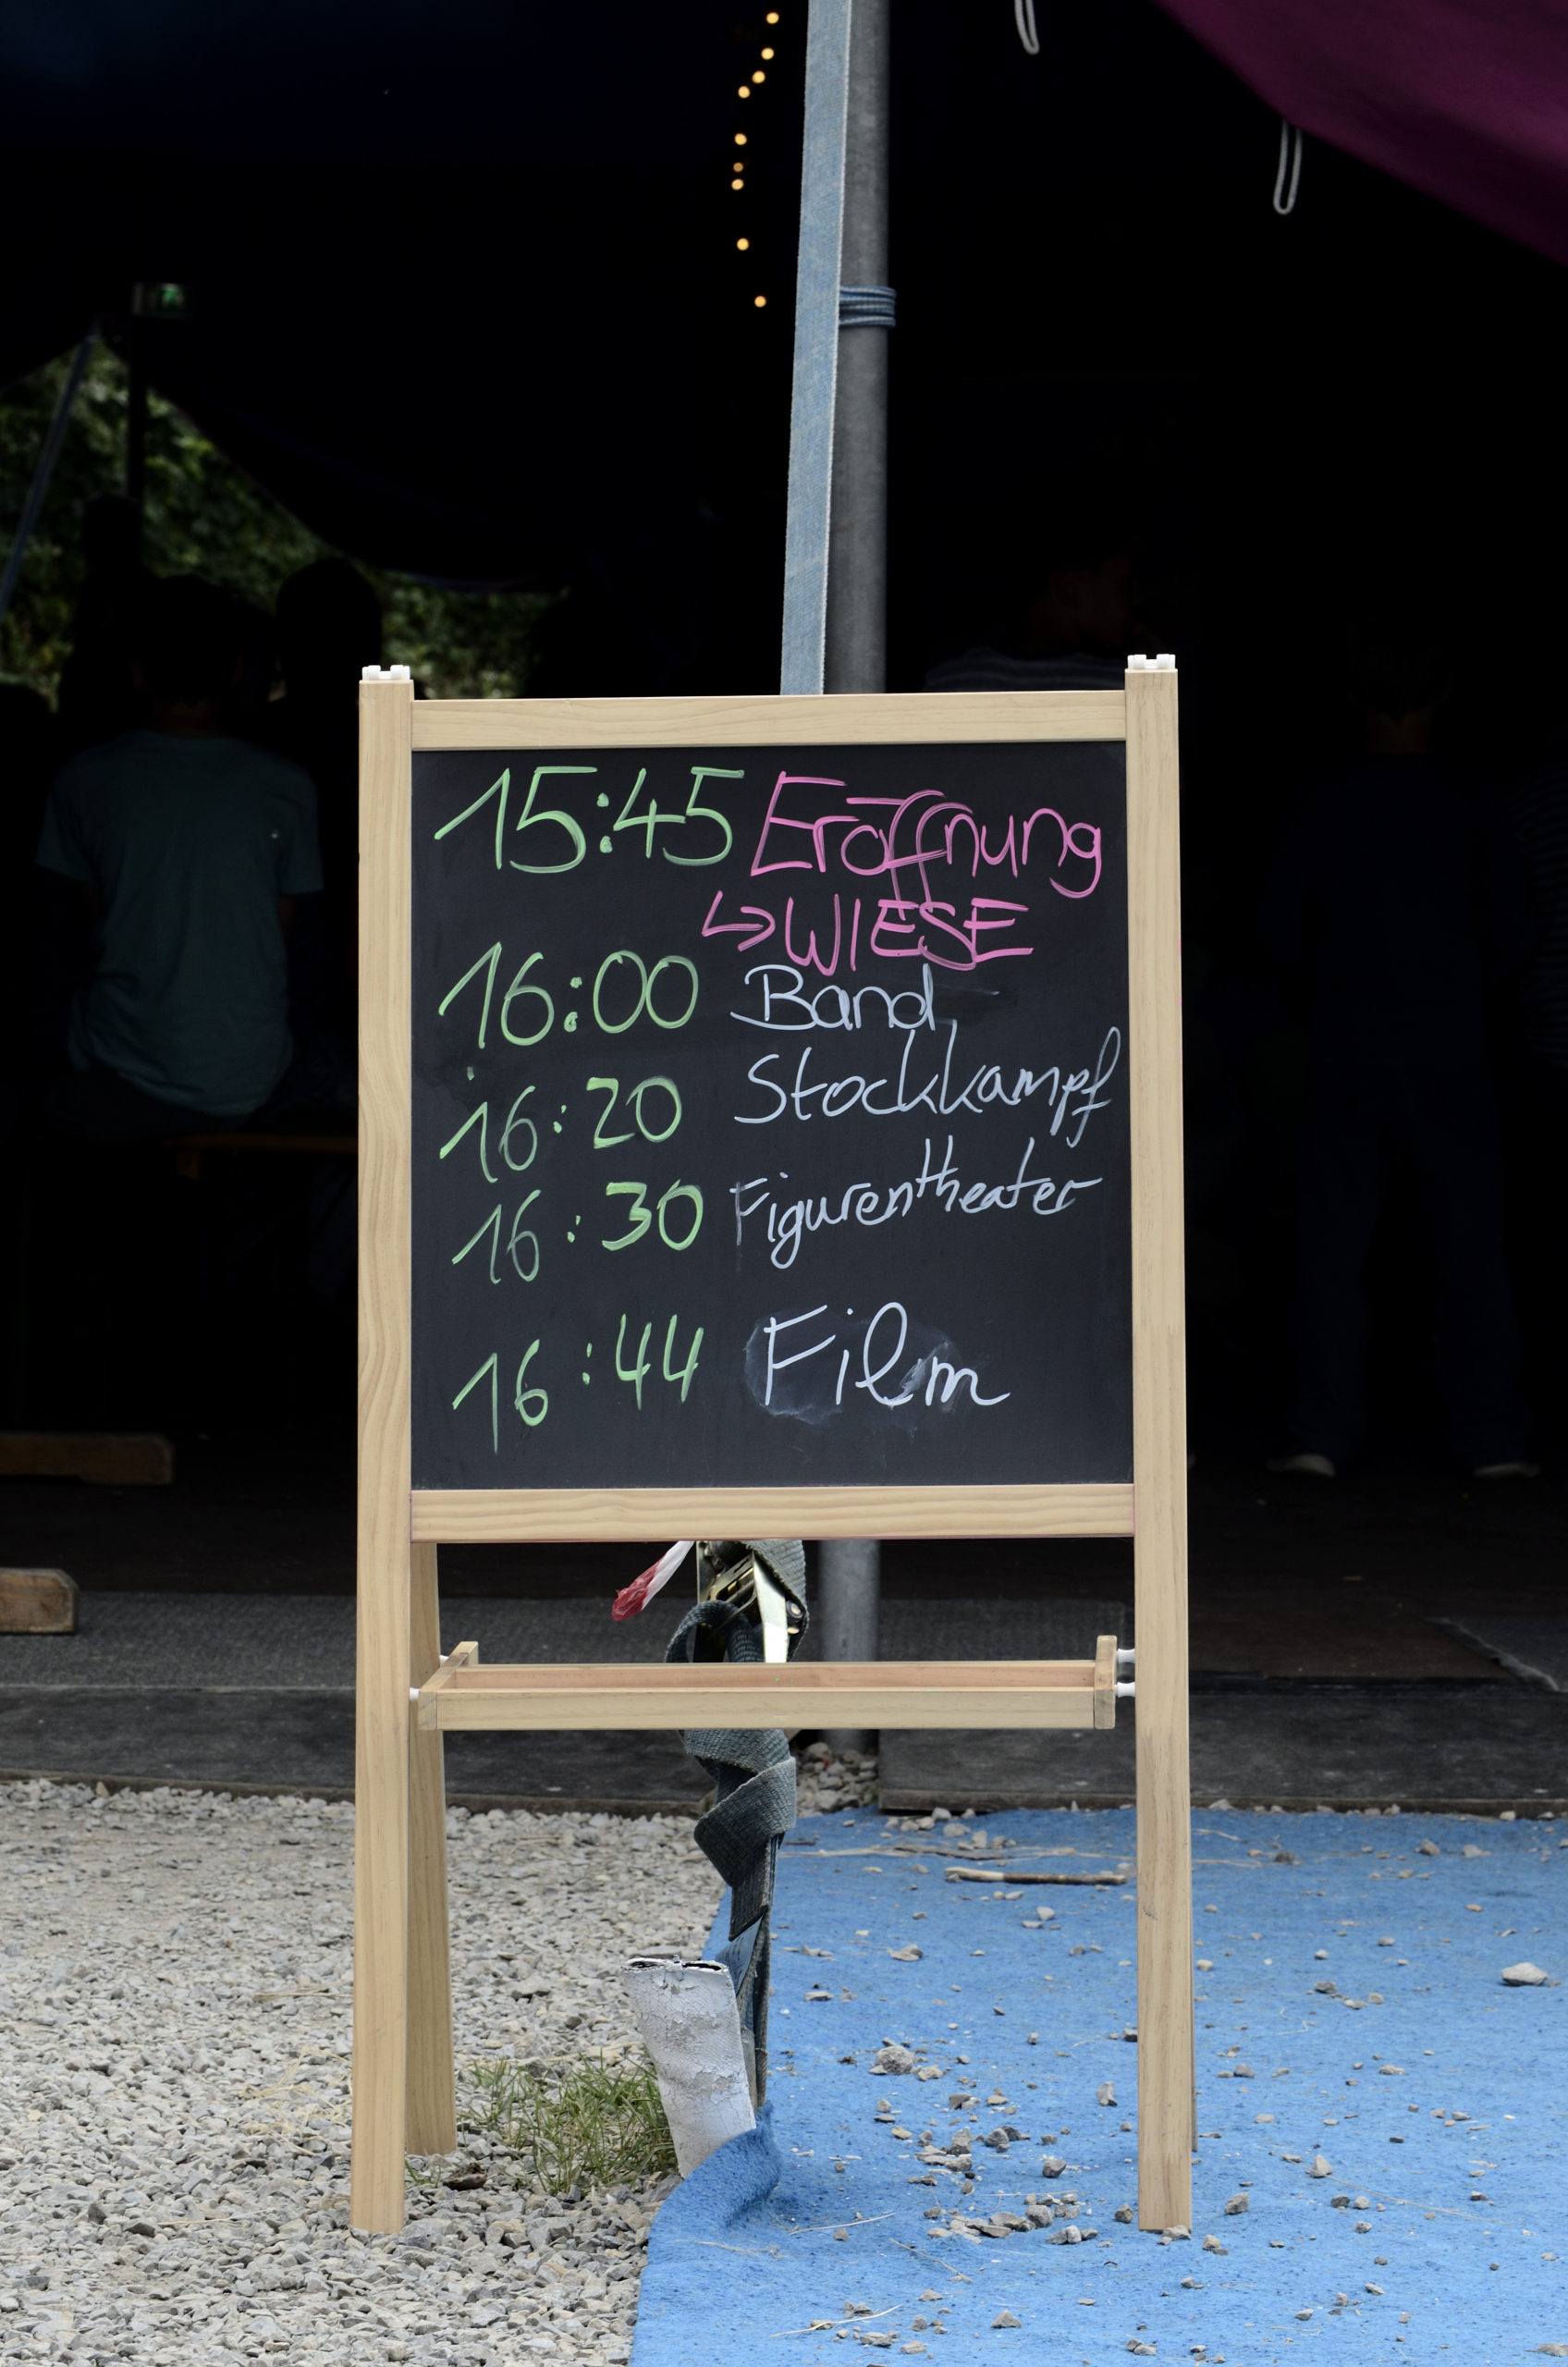 15:45 Eröffnung
↳ WIESE
16:00 Band
16:20 Stockkampf
16:30 Figurentheater
16:44 Film